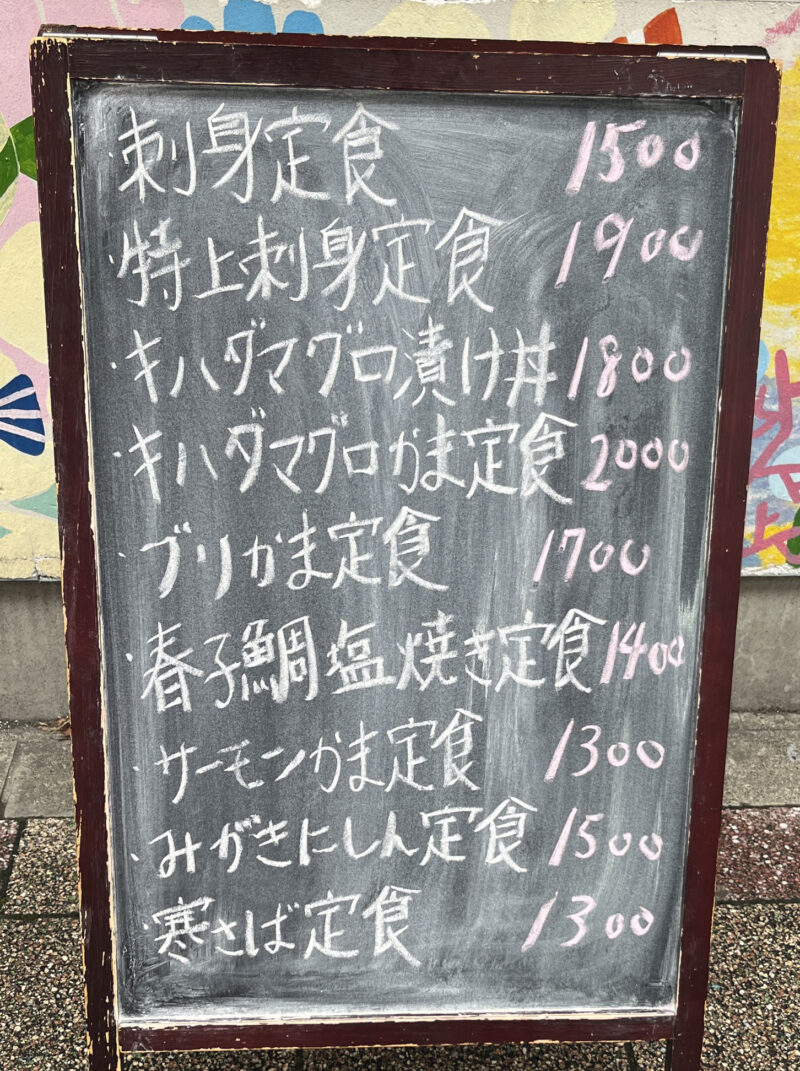 ・刺身定食 1500
・特上刺身定食 1900
・キハダマグロ漬け丼 1800
・キハダマグロかま定食 2000
・ブリかま定食 1700
・春子鯛塩焼き定食 1400
・サーモンかま定食 1300
・みがきにしん定食 1500
・寒さば定食 1300